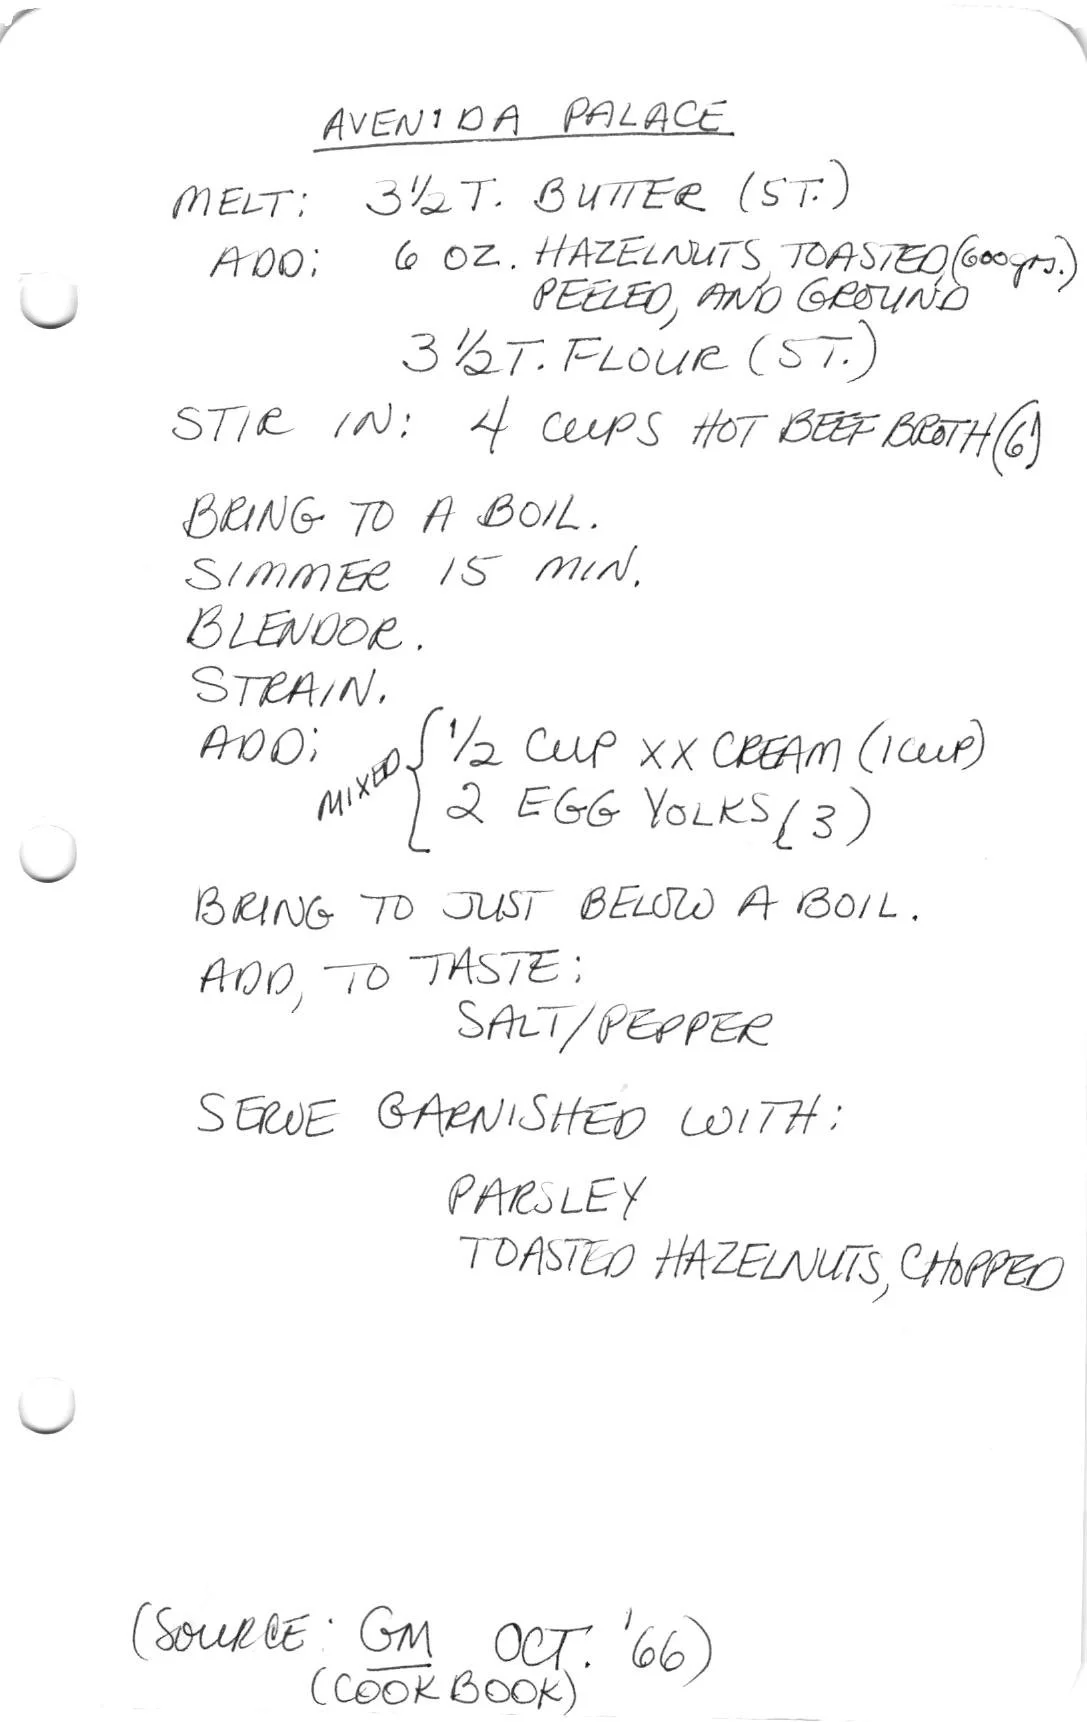 AVENIDA PALACE
MELT: 3½ T. BUTTER (5 T.)
ADD: 6 OZ. HAZELNUTS, TOASTED, (600 grs.)
PEELED, AND GROUND
3½ T. FLOUR (5 T.)
STIR IN: 4 CUPS HOT BEEF BROTH (6)
BRING TO A BOIL.
SIMMER 15 MIN.
BLENDOR.
STRAIN.
ADD: MIXED { ½ CUP XX CREAM (1 CUP)
2 EGG YOLKS (3)
BRING TO JUST BELOW A BOIL.
ADD, TO TASTE:
SALT/PEPPER
SERVE GARNISHED WITH:
PARSLEY
TOASTED HAZELNUTS, CHOPPED
(SOURCE: GM OCT. '66)
(COOKBOOK)